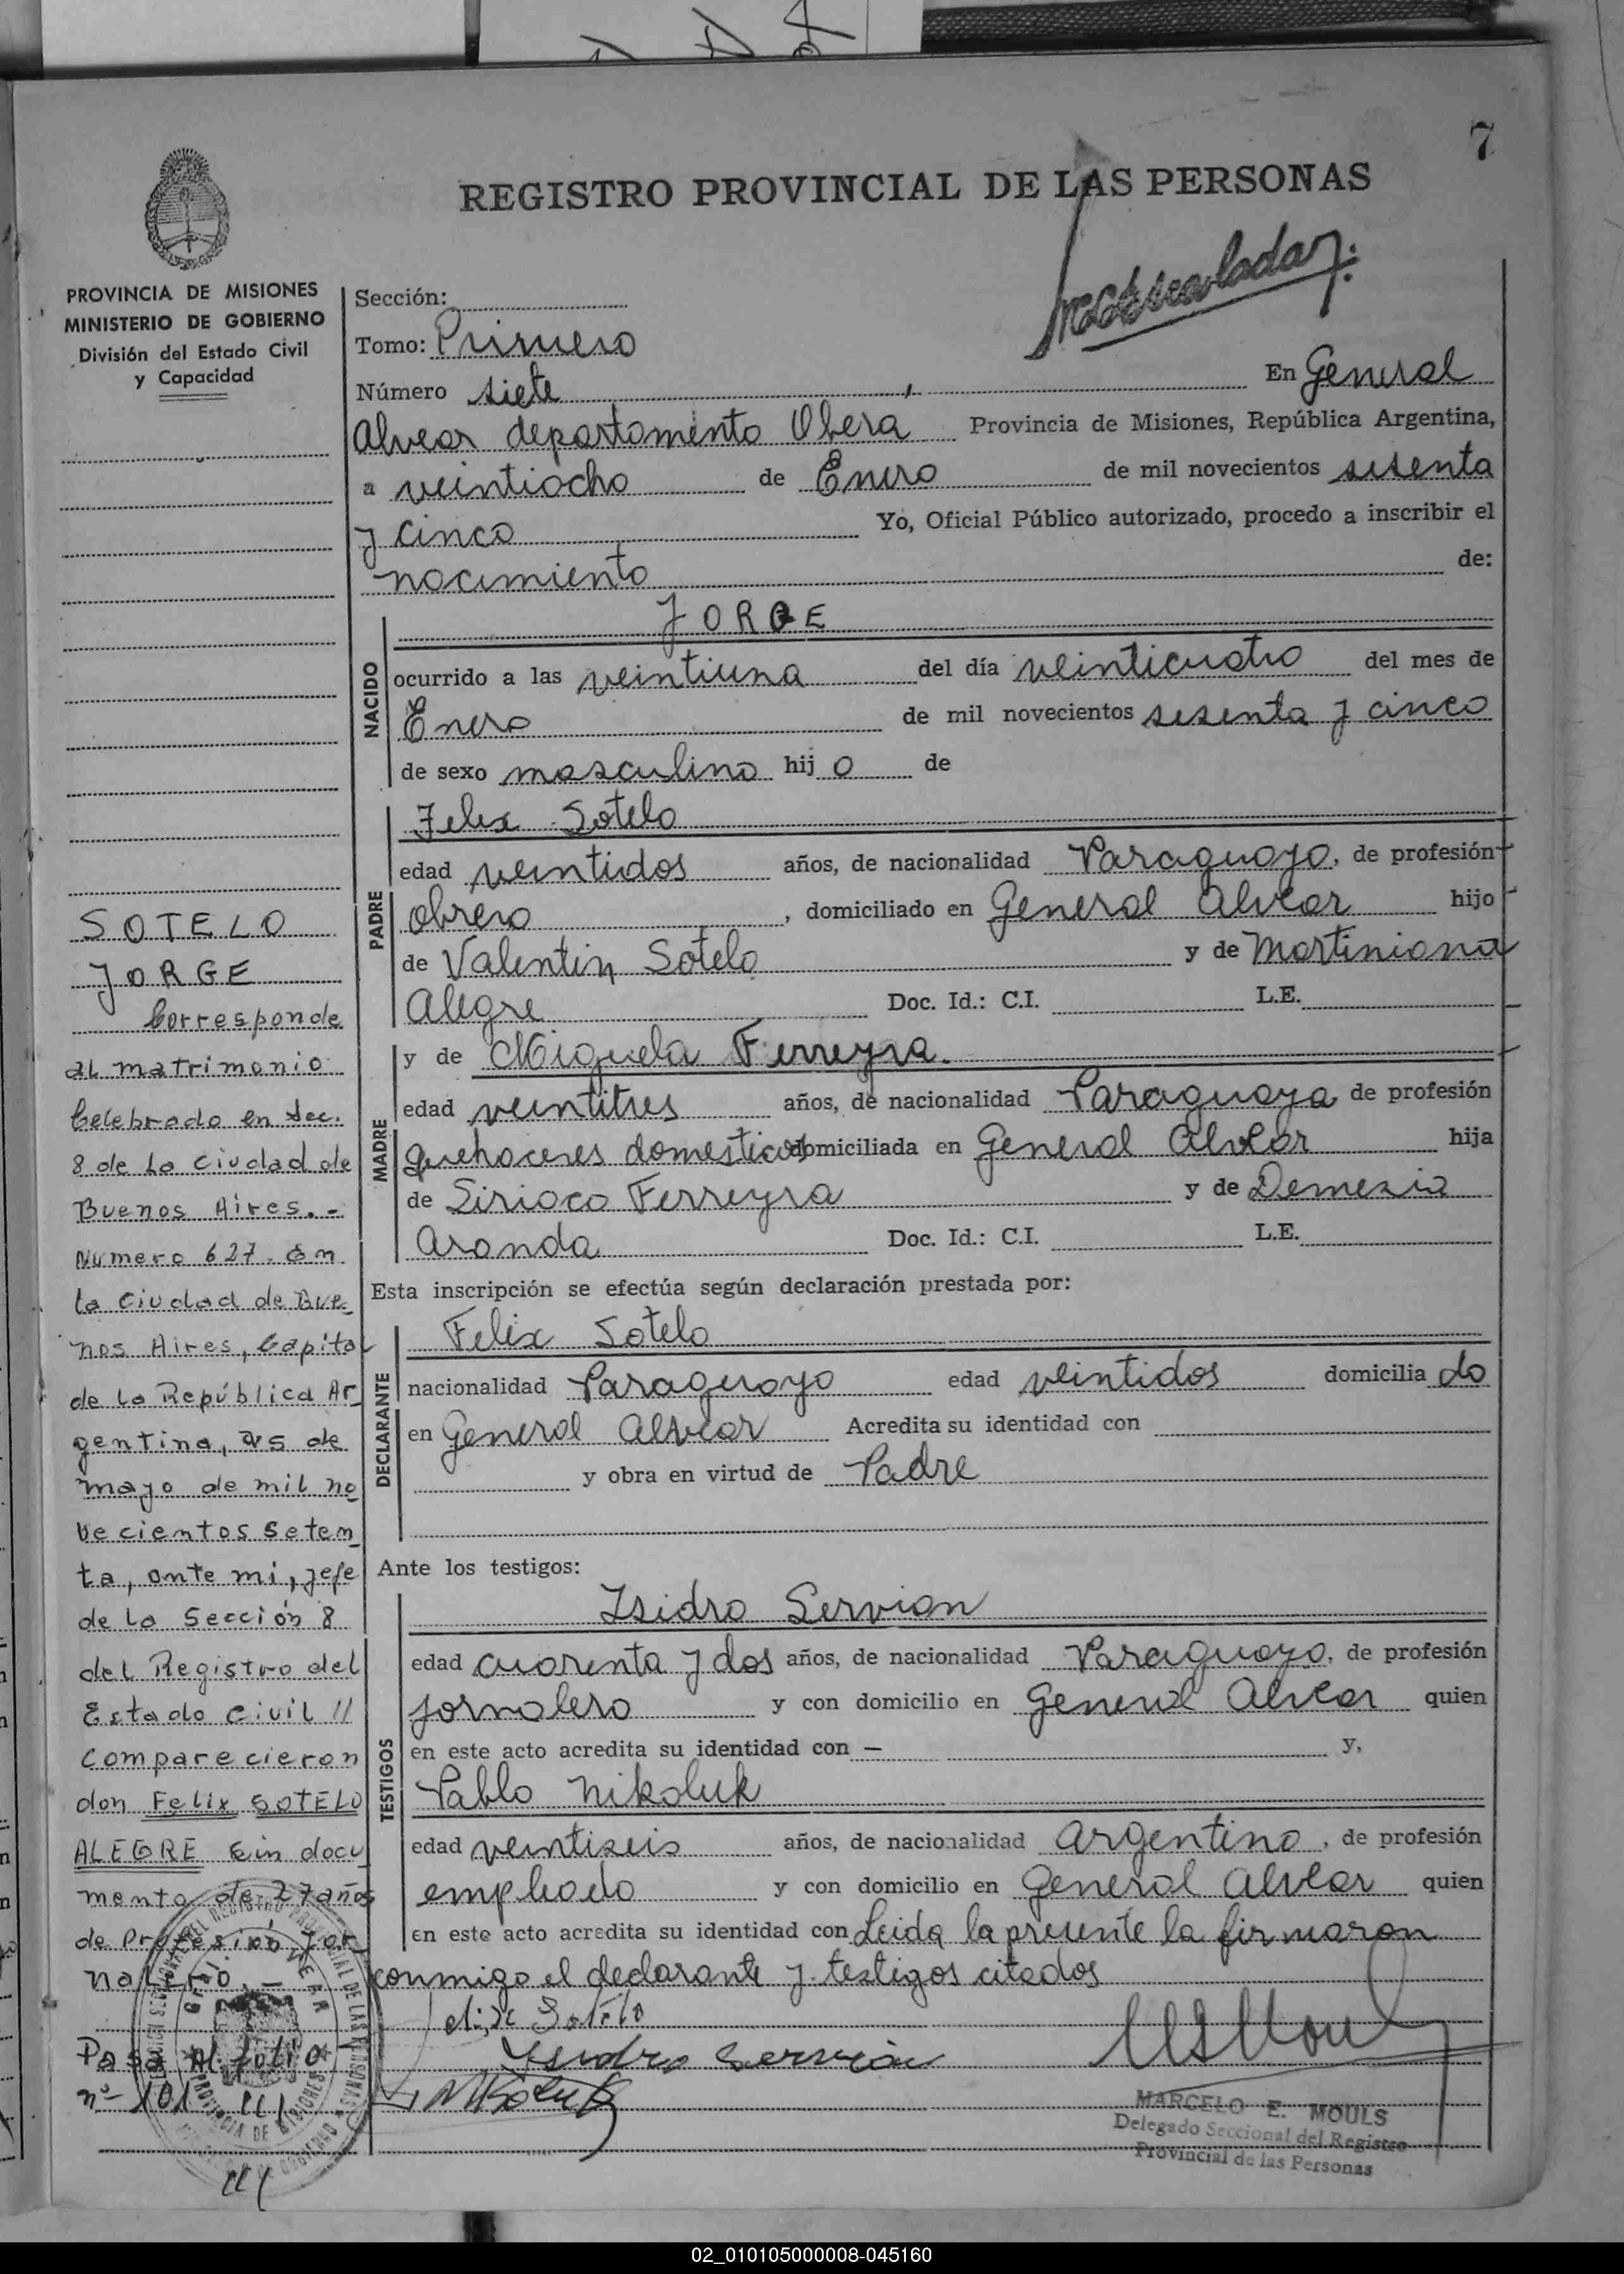 7
REGISTRO PROVINCIAL DE LAS PERSONAS
PROVINCIA DE MISIONES
MINISTERIO DE GOBIERNO
División del Estado Civil
y Capacidad
Sección:
Tomo: Primero
Número siete En General
Alvear departamento Obera Provincia de Misiones, República Argentina,
a veintiocho de Enero de mil novecientos sesenta
y cinco Yo, Oficial Público autorizado, procedo a inscribir el
nacimiento de:
NACIDO
JORGE
ocurrido a las veintiuna del día veinticuatro del mes de
Enero de mil novecientos sesenta y cinco
de sexo masculino hij o de
PADRE
Felix Sotelo
edad veintidos años, de nacionalidad Paraguayo, de profesión
obrero, domiciliado en General Alvear hijo
de Valentin Sotelo y de Martiniana
Alegre Doc. Id.: C.I. L.E.
MADRE
y de Miguela Ferreyra.
edad veintitres años, de nacionalidad Paraguaya de profesión
quehaceres domesticos domiciliada en General Alvear hija
de Siriaco Ferreyra y de Demezia
Aranda Doc. Id.: C.I. L.E.
Esta inscripción se efectúa según declaración prestada por:
DECLARANTE
Felix Sotelo
nacionalidad Paraguayo edad veintidos domicilia do
en General Alvear Acredita su identidad con
y obra en virtud de Padre
Ante los testigos:
TESTIGOS
Isidro Servian
edad cuarenta y dos años, de nacionalidad Paraguayo, de profesión
jornalero y con domicilio en General Alvear quien
en este acto acredita su identidad con — y,
Pablo Nikoluk
edad veintiseis años, de nacionalidad Argentino, de profesión
empleado y con domicilio en General Alvear quien
en este acto acredita su identidad con Leida la presente la firmaron
conmigo el declarante y testigos citados
Isidro Servian
Nikoluk
MARCELO E. MOULS
Delegado Seccional del Registro
Provincial de las Personas
SOTELO
JORGE
Corresponde
al matrimonio
Celebrado en Sec.
8 de la Ciudad de
Buenos Aires.-
Numero 627. En
la Ciudad de Bue
nos Aires, Capital
de la República Ar
gentina, a 5 de
mayo de mil no
vecientos seten
ta, ante mi, jefe
de la Sección 8
del Registro del
Estado Civil //
comparecieron
don Felix SOTELO
ALEGRE Sin docu
mento de 27 años
de Profesión Jor
nalero.
Pasa al folio
nº 101
02_010105000008-045160